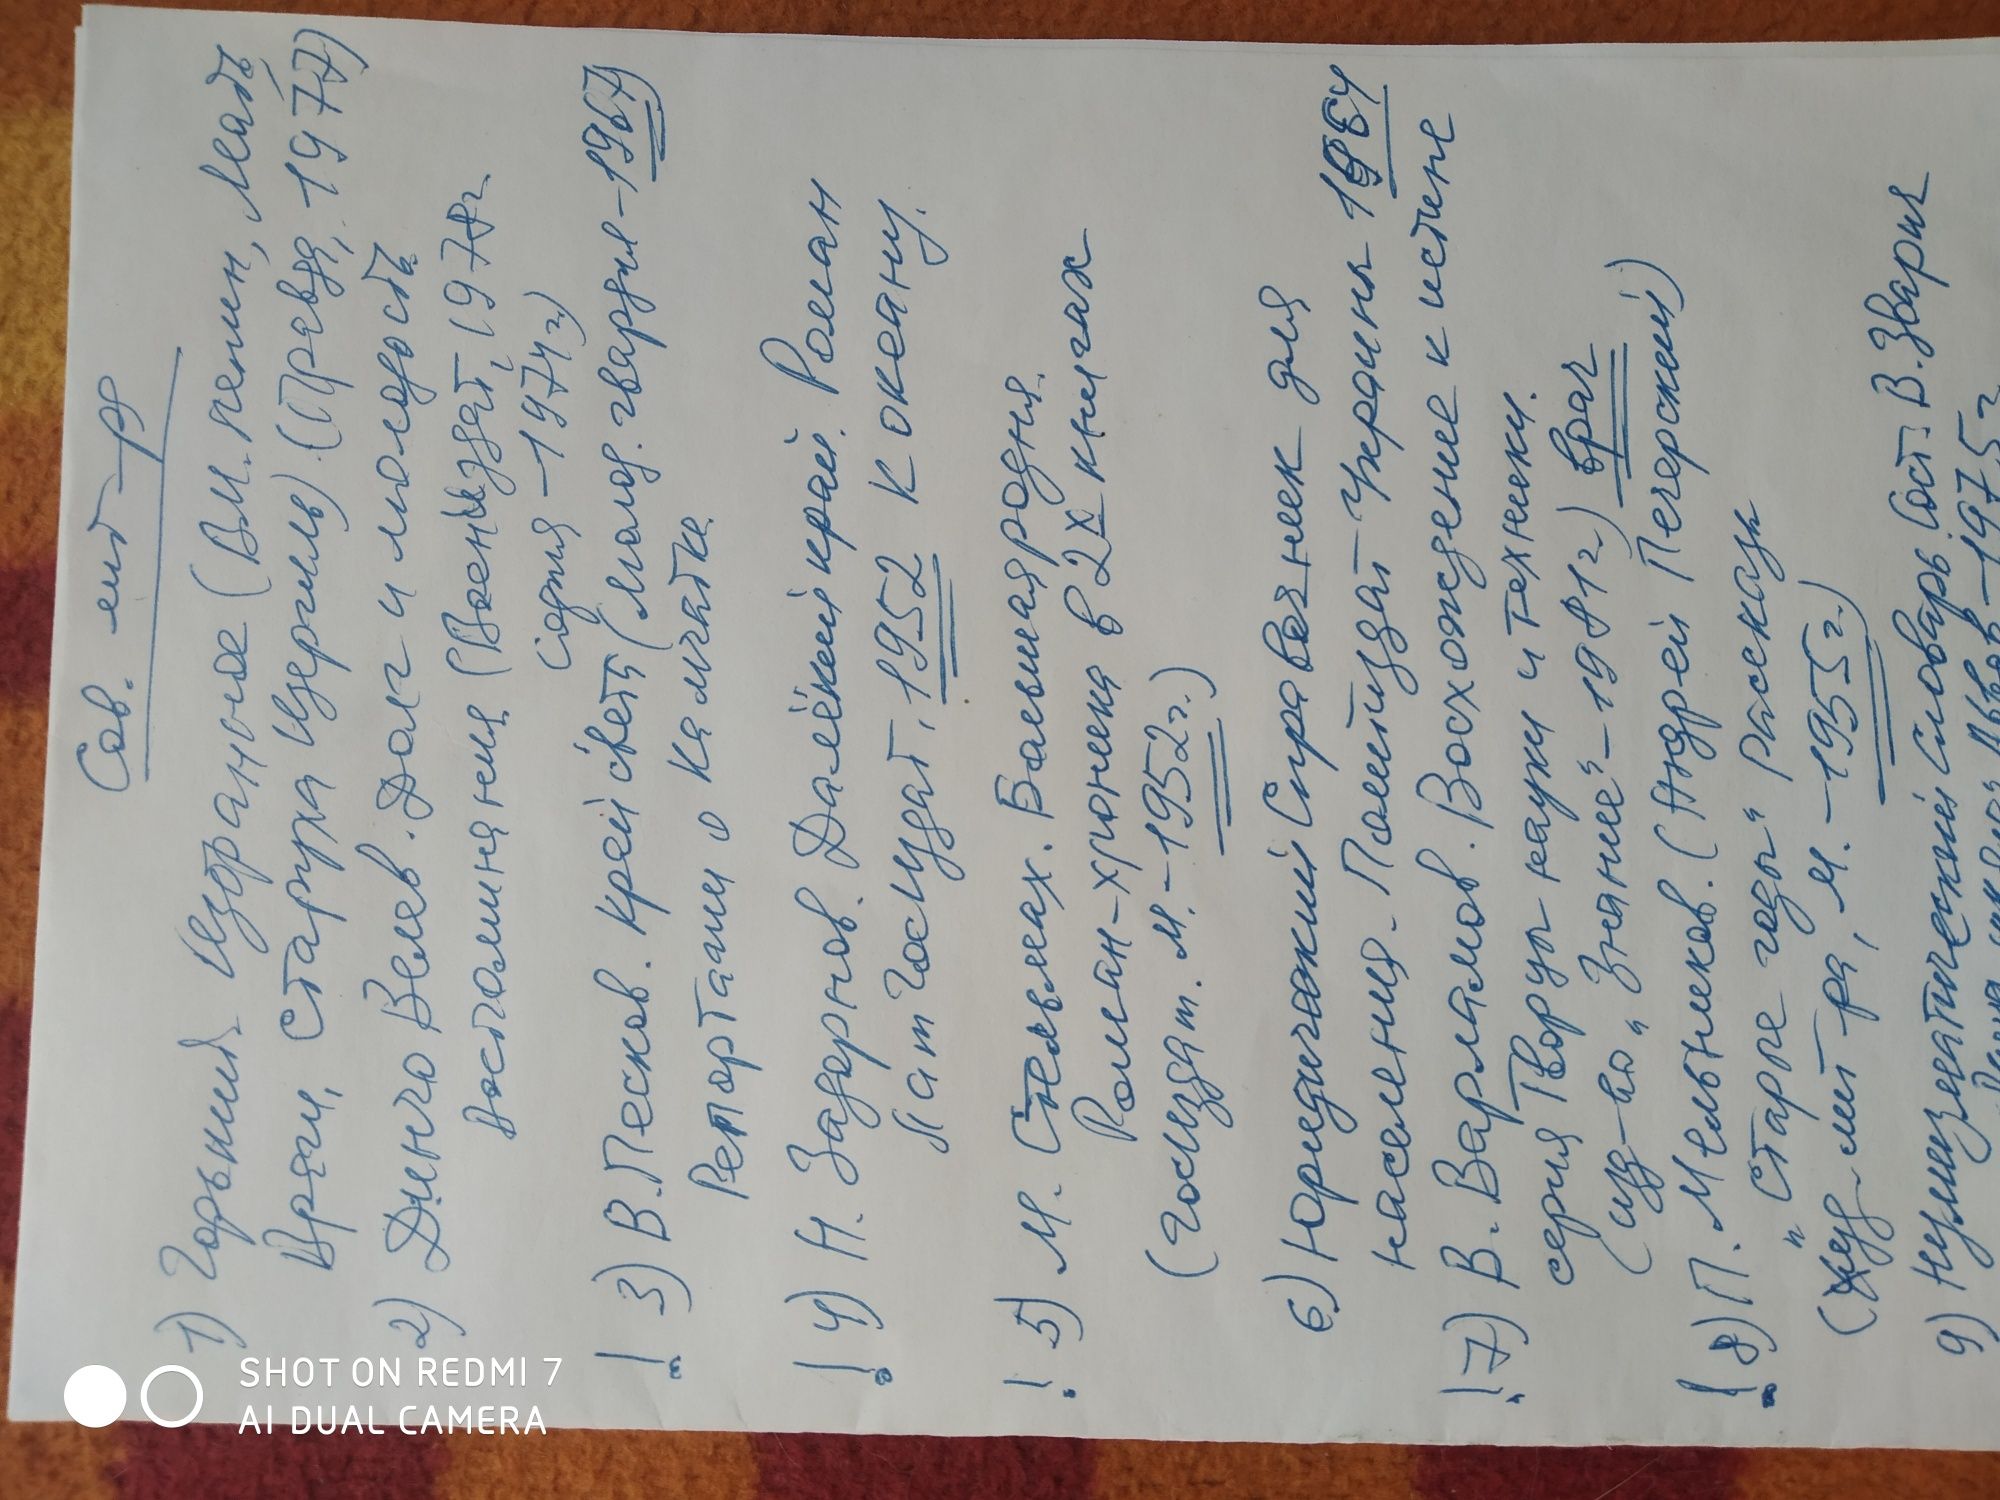 Сов. лит-ра
1) Горький. Избранное (Вл. Ленин, Мать,
Враги, Старуха Изергиль). (Правда, 1977)
2) Динчо Велев. Долг и молодость
Воспоминания (Воениздат, 1978г.
София - 1974г.)
! 3) В. Песков. Край света (Молод. гвардия - 1967)
Репортаж о Камчатке
! 4) Н. Задорнов. Далёкий край. Роман
Лат Госиздат, 1952 К океану.
! 5) М. Стельмах. Большая родня.
Роман-хроника в 2х книгах
(Госиздат. М. - 1952г.)
6) Юридический Справочник для
населения. Политиздат Украины
! 7) В. Варламов. Восхождение к истине
серия Творцы науки и техники.
(изд-во "Знание" - 1981г.) врач
! 8) П. Мельников. (Андрей Печерский)
"Старые годы" Рассказы
(Худ. лит-ра, М. - 1955г.)
9) Нумизматический Словарь. Сост. В. Зварич
Львов - 1975г
SHOT ON REDMI 7
AI DUAL CAMERA